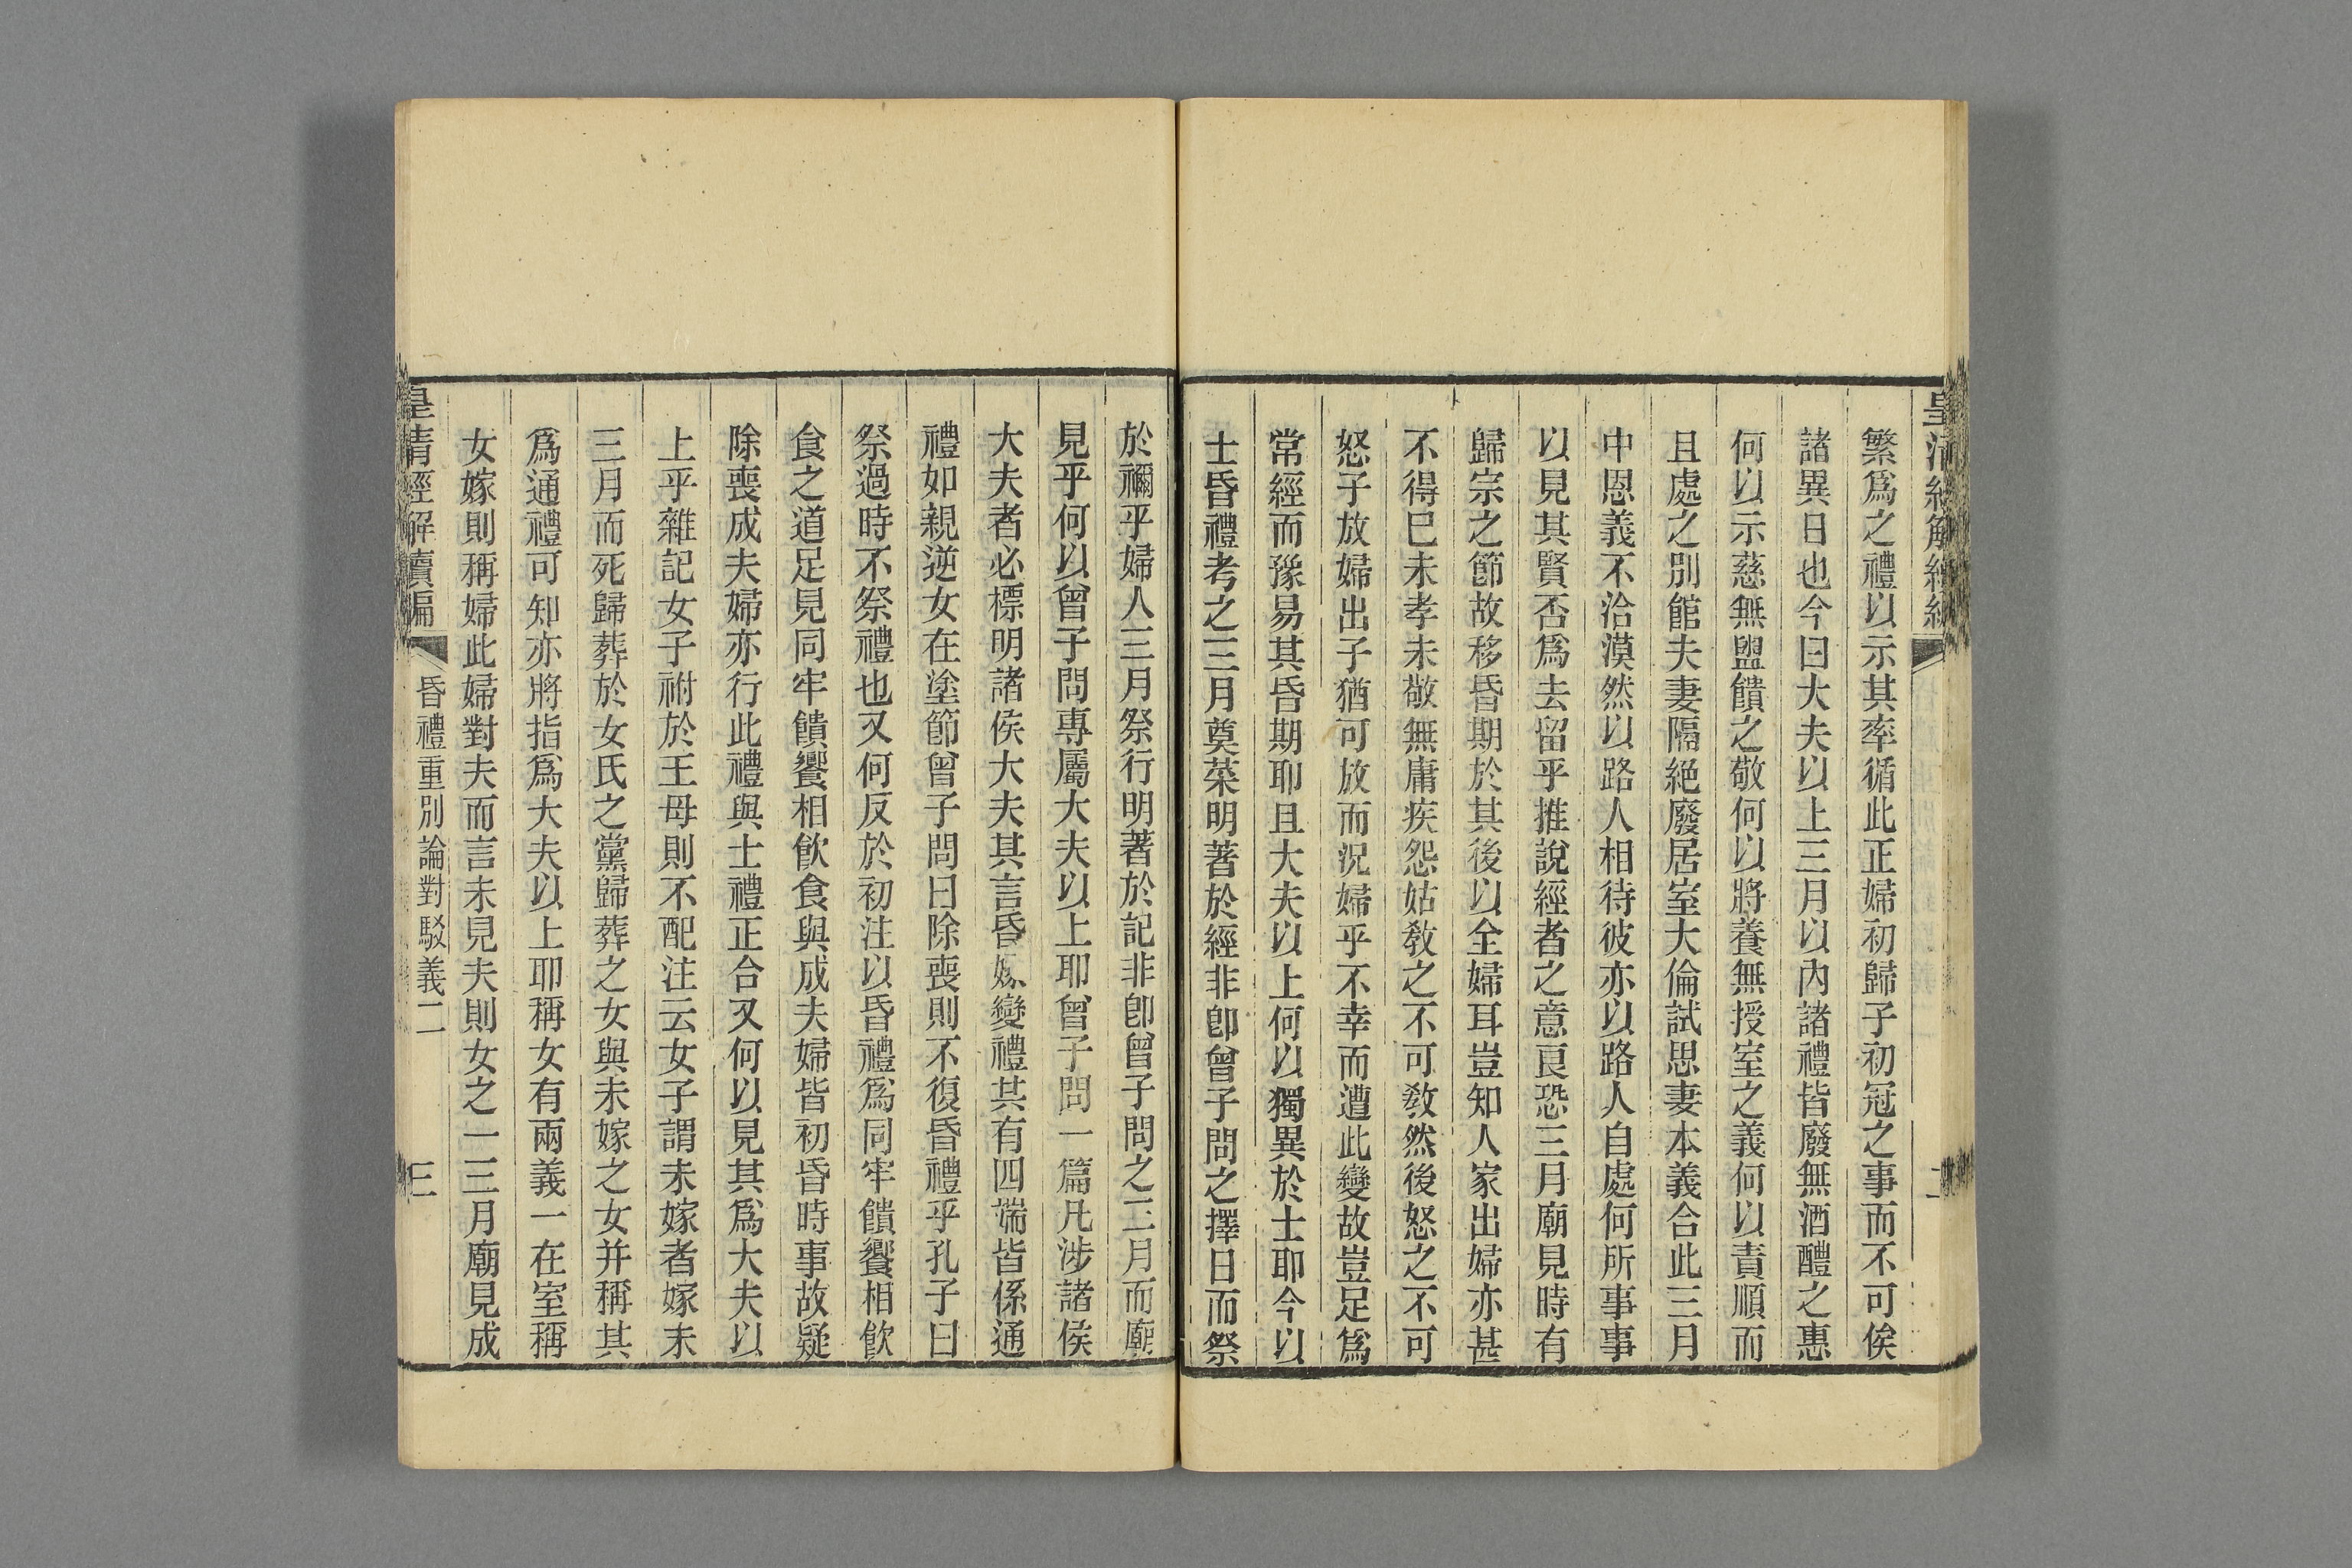 繁爲之禮以示其率循此正婦初歸子初冠之事而不可俟
諸異日也今曰大夫以上三月以內諸禮皆廢無酒醴之惠
何以示慈無盥饋之敬何以將養無授室之義何以責順而
且處之別館夫妻隔絕廢居室大倫試思妻本義合此三月
中恩義不洽漠然以路人相待彼亦以路人自處何所事事
以見其賢否爲去留乎推說經者之意良恐三月廟見時有
歸宗之節故移昏期於其後以全婦耳豈知人家出婦亦甚
不得已未孝未敬無庸疾怨姑教之不可教然後怒之不可
怒子放婦出子猶可放而況婦乎不幸而遭此變故豈足爲
常經而豫易其昏期耶且大夫以上何以獨異於士耶今以
士昏禮考之三月奠菜明著於經非卽曾子問之擇日而祭
於禰乎婦人三月祭行明著於記非卽曾子問之三月而廟
見乎何以曾子問專屬大夫以上耶曾子問一篇凡涉諸侯
大夫者必標明諸侯大夫其言昏嫁變禮其有四端皆係通
禮如親逆女在塗節曾子問曰除喪則不復昏禮乎孔子曰
祭過時不祭禮也又何反於初注以昏禮爲同牢饋饗相飮
食之道足見同牢饋饗相飮食與成夫婦皆初昏時事故疑
除喪成夫婦亦行此禮與士禮正合又何以見其爲大夫以
上乎雜記女子祔於王母則不配注云女子謂未嫁者嫁未
三月而死歸葬於女氏之黨歸葬之女與未嫁之女并稱其
爲通禮可知亦將指爲大夫以上耶稱女有兩義一在室稱
女嫁則稱婦此婦對夫而言未見夫則女之一三月廟見成
皇清經解續編 昏禮重別論對駁義二 三